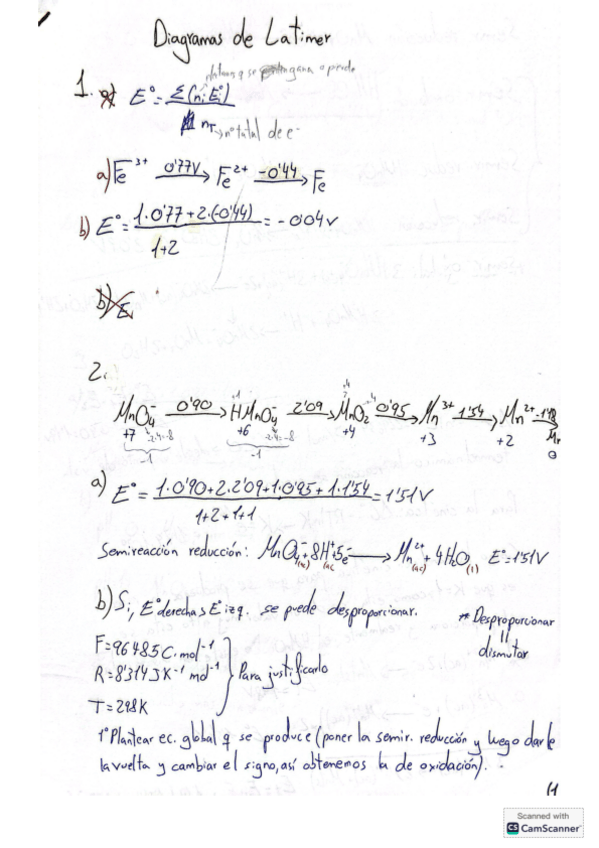 Diagramas de Latimer
1. a) E° = Σ(nᵢEᵢ°) / n_T → nº total de e-
a) Fe³⁺ —0'77V→ Fe²⁺ —-0'44→ Fe
b) E° = 1·0'77+2·(-0'44) / 1+2 = -0'04V
b) E
2.
MnO₄⁻ —0'90→ HMnO₄⁻ —2'09→ MnO₂ —0'95→ Mn³⁺ —1'54→ Mn²⁺ → Mn
+7 -2·4=-8 +6 -2·4=-8 +4 +3 +2 0
-1 -1
a) E° = 1·0'90+2·2'09+1·0'95+1·1'54 / 1+2+1+1 = 1'51V
Semireacción reducción: MnO₄⁻(ac)+8H⁺(ac)+5e⁻ → Mn²⁺(ac)+4H₂O(l) E°=1'51V
b) Si, E° derecha > E° izq. se puede desproporcionar.
** Desproporcionar
||
dismutar
F=96485C·mol⁻¹
R=8'314JK⁻¹mol⁻¹
T=298K
Para justificarlo
1º Plantear ec. global q se produce (poner la semir. reducción y luego darle
la vuelta y cambiar el signo, así obtenemos la de oxidación).
Scanned with
CS CamScanner